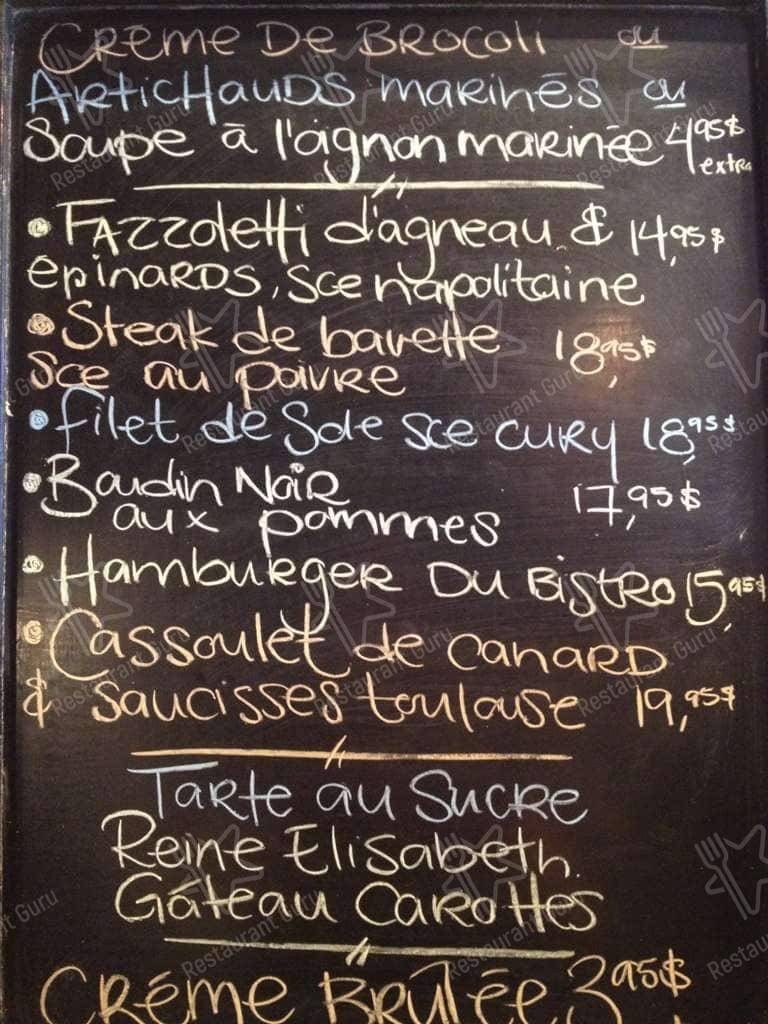 CRÈME DE BROCOLI ou
ARTICHAUDS marinés ou
Soupe à l'oignon marinée 4,95$ extra
• FAZZOLETTI d'agneau & 14,95$
épinards, sce napolitaine
• Steak de bavette 18,95$
Sce au poivre
• filet de Sole sce cury 18,95$
• Boudin Noir
aux pommes 17,95$
• Hamburger Du Bistro 15,95$
• Cassoulet de canard
& saucisses toulouse 19,95$
Tarte au Sucre
Reine Elisabeth
Gâteau Carottes
CRÉME BRÛLÉE 3,95$
Restaurant Guru